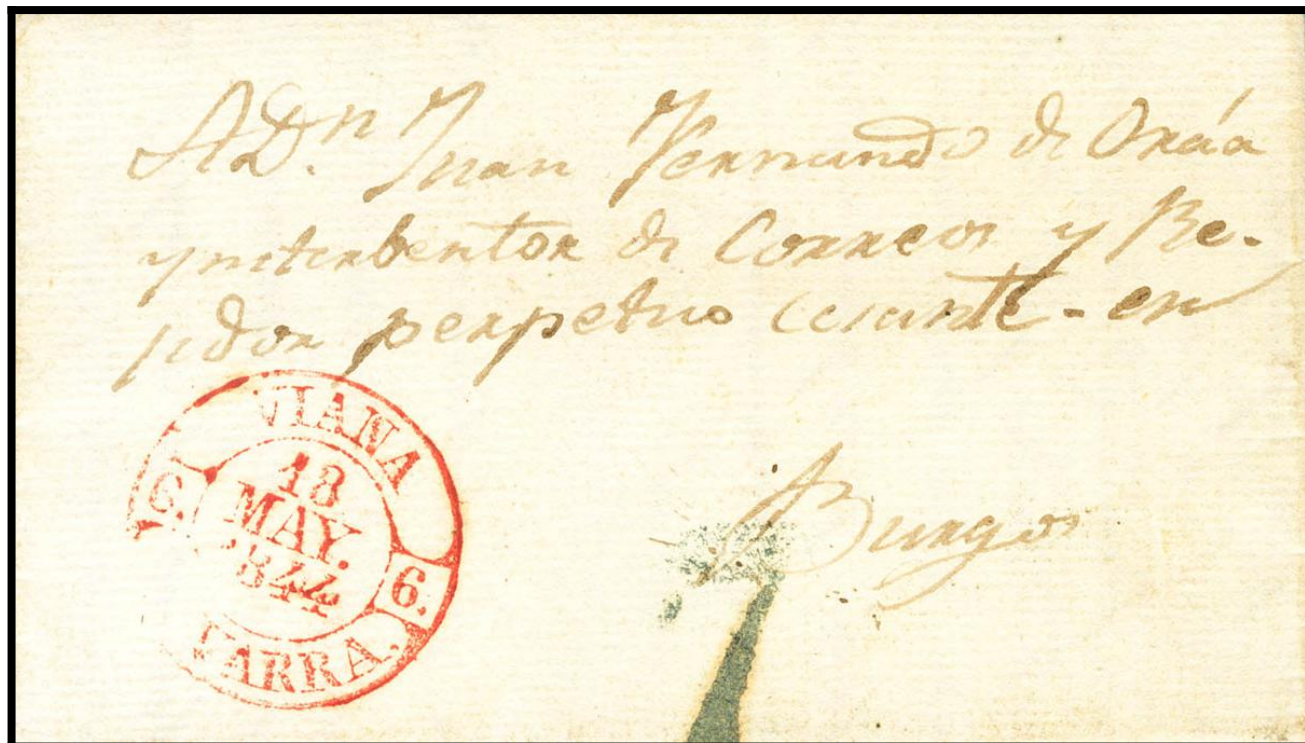 A Dn. Juan Fernando de Oráa
ynterbentor de Correos y Re-
jidor perpetuo cesante - en
Burgos
VIANA
18
MAY.
1844
6. 6.
NAVARRA.